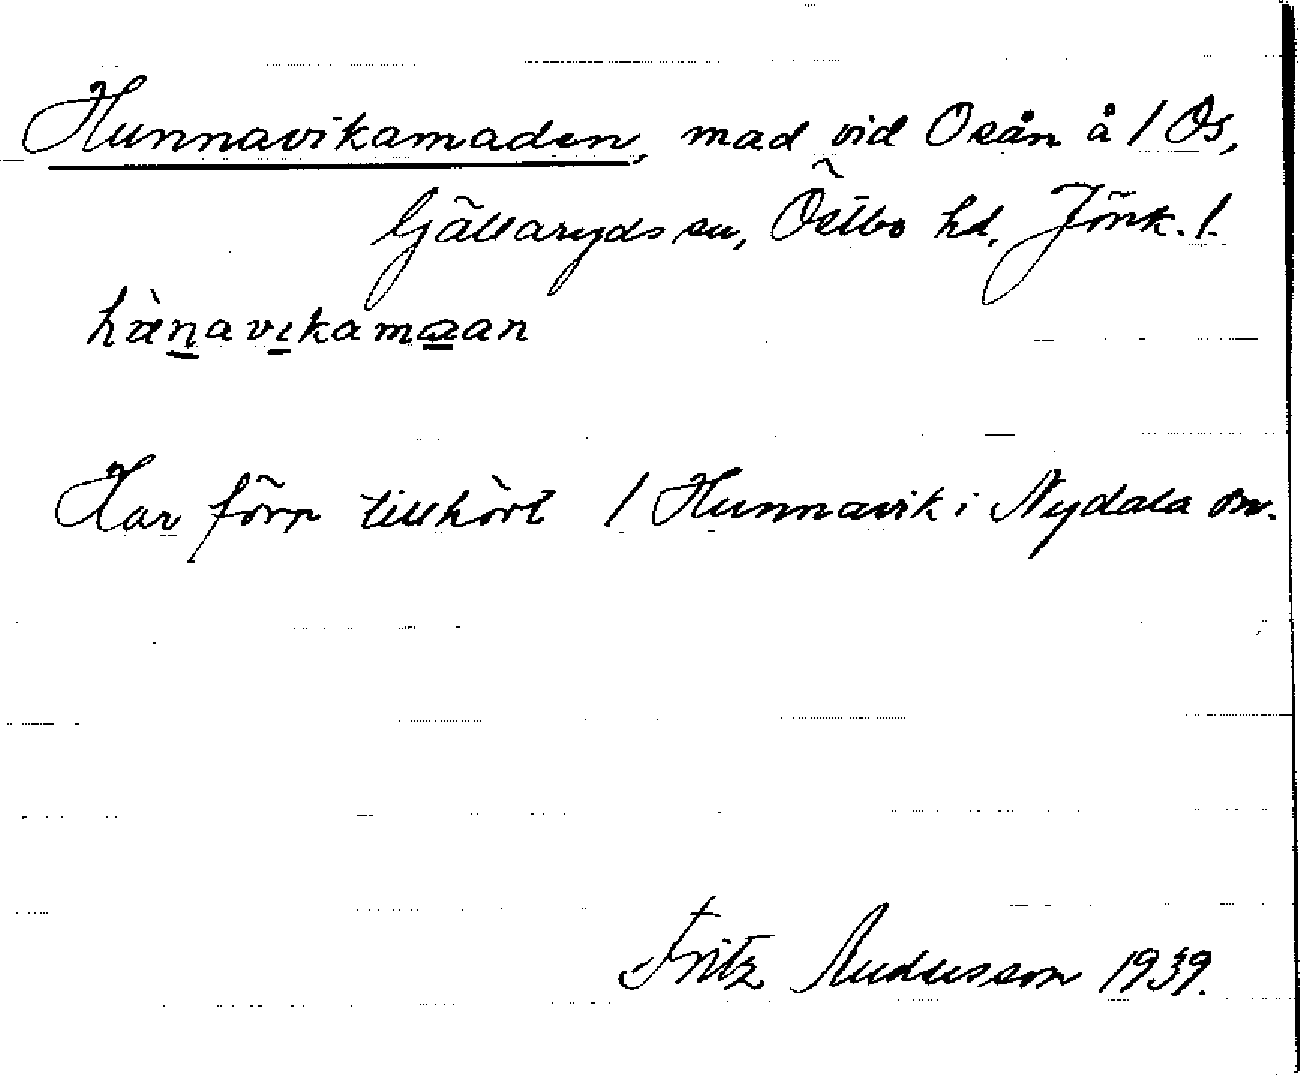 Hunnavikamaden, mad vid Osån å / Os,
Gällaryds sn, Östbo hd, Jönk. l.
hànavikamaan
Har förr tillhört / Hunnavik i Nydala sn.
Fritz Andersson 1939.